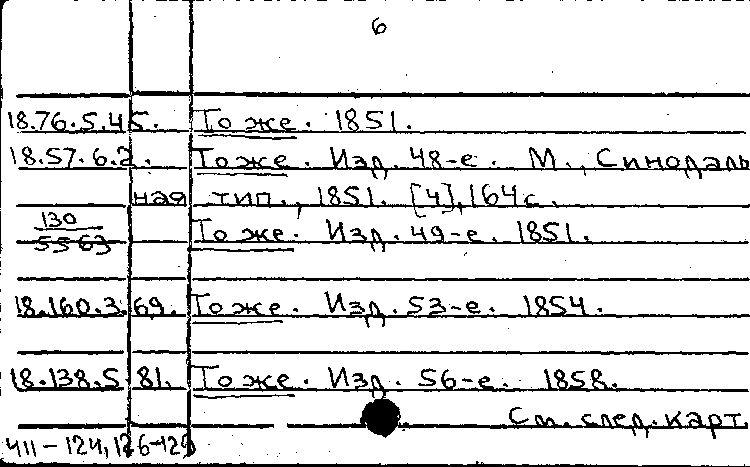 6
18.76.5.45. То же. 1851.
18.57.6.2. То же. Изд. 48-е. М., Синодаль
ная тип., 1851. [4], 164 с.
130
5563 То же. Изд. 49-е. 1851.
18.160.3.69. То же. Изд. 53-е. 1854.
18.138.5.81. То же. Изд. 56-е. 1858.
См. след. карт.
411-124, 126-129